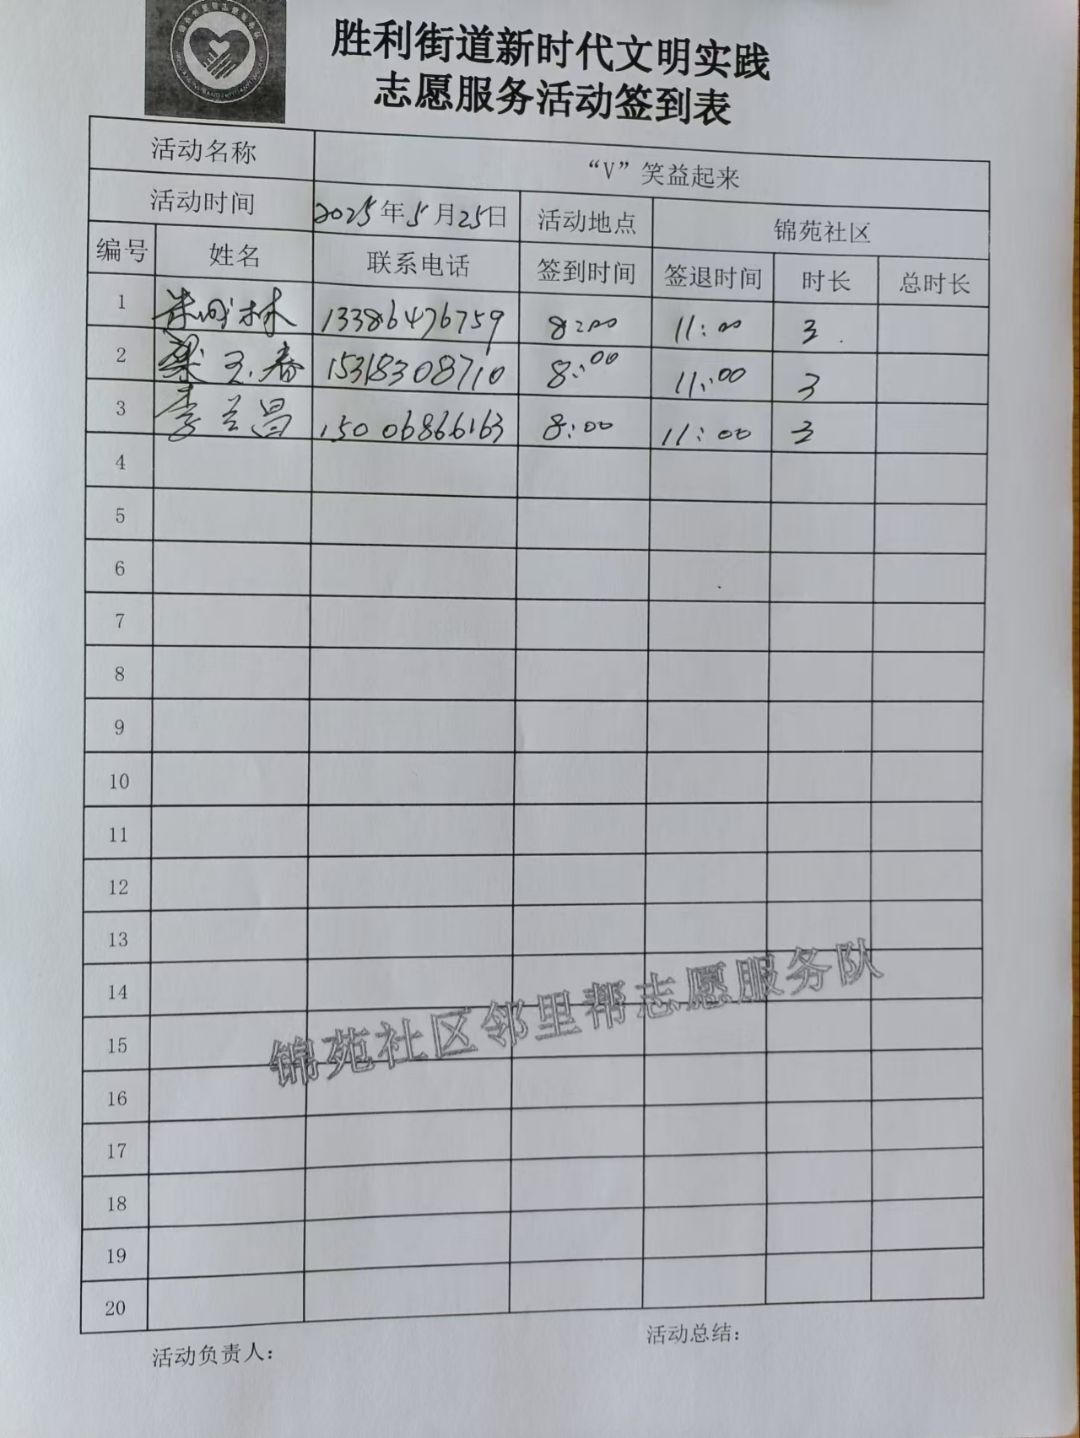 胜利街道新时代文明实践
志愿服务活动签到表
活动名称 “V”笑益起来
活动时间 2025年5月25日 活动地点 锦苑社区
编号 姓名 联系电话 签到时间 签退时间 时长 总时长
1 林 13386476759 8:00 11:00 3
2 梁玉春 15318308710 8:00 11:00 3
3 李兰昌 15006866163 8:00 11:00 3
4
5
6
7
8
9
10
11
12
13
14
15
16
17
18
19
20
锦苑社区邻里帮志愿服务队
活动负责人: 活动总结: